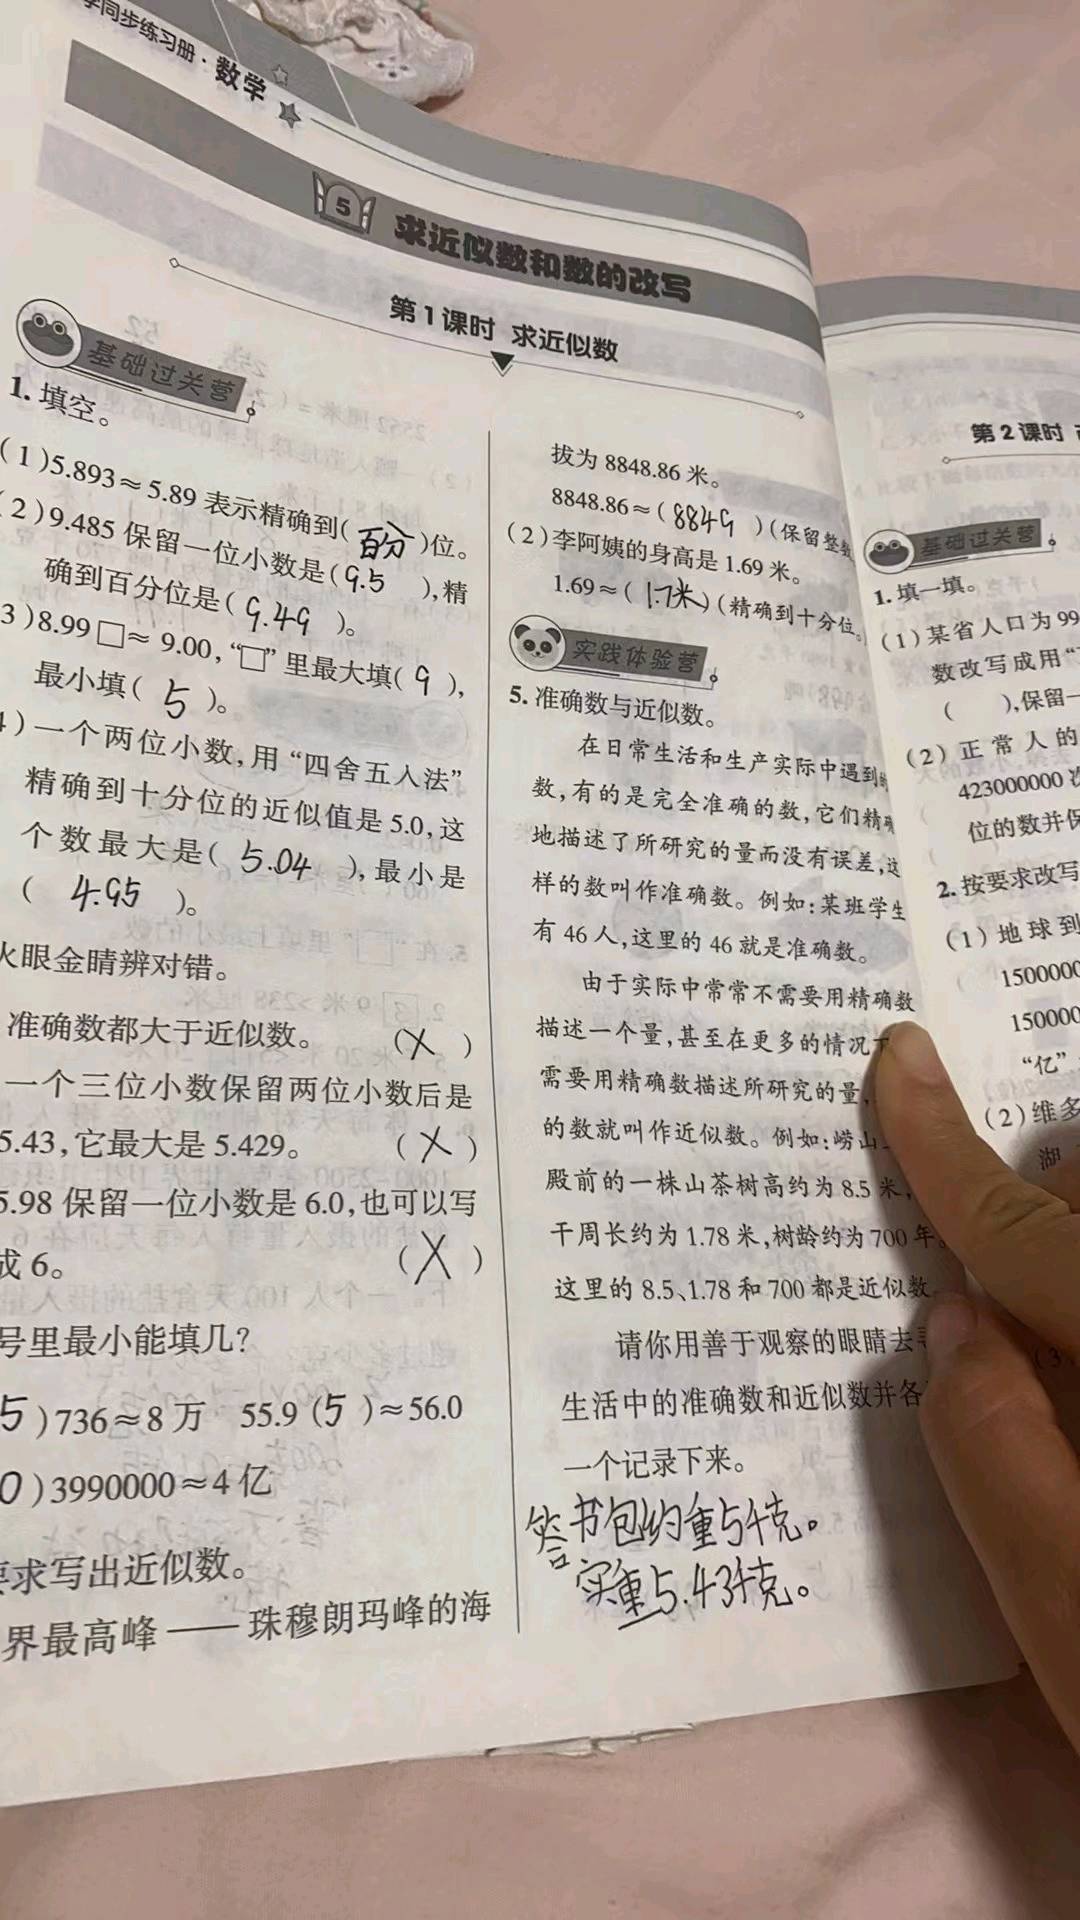 学同步练习册·数学
5 求近似数和数的改写
第1课时 求近似数
基础过关营
1. 填空。
(1)5.893≈5.89 表示精确到(百分)位。
(2)9.485 保留一位小数是(9.5),精
确到百分位是(9.49)。
3)8.99□≈9.00,“□”里最大填(9),
最小填(5)。
4)一个两位小数,用“四舍五入法”
精确到十分位的近似值是5.0,这
个数最大是(5.04),最小是
(4.95)。
火眼金睛辨对错。
准确数都大于近似数。(X)
一个三位小数保留两位小数后是
5.43,它最大是5.429。(X)
5.98 保留一位小数是6.0,也可以写
成6。(X)
号里最小能填几?
5)736≈8万 55.9(5)≈56.0
0)3990000≈4亿
要求写出近似数。
界最高峰——珠穆朗玛峰的海
拔为 8848.86 米。
8848.86≈(8849)(保留整数
(2)李阿姨的身高是1.69米。
1.69≈(1.7米)(精确到十分位。
实践体验营
5. 准确数与近似数。
在日常生活和生产实际中遇到的
数,有的是完全准确的数,它们精确
地描述了所研究的量而没有误差,这
样的数叫作准确数。例如:某班学生
有46人,这里的46就是准确数。
由于实际中常常不需要用精确数
描述一个量,甚至在更多的情况下
需要用精确数描述所研究的量,
的数就叫作近似数。例如:崂山
殿前的一株山茶树高约为8.5米,
干周长约为1.78米,树龄约为700年。
这里的8.5、1.78和700都是近似数。
请你用善于观察的眼睛去寻
生活中的准确数和近似数并各
一个记录下来。
答书包约重5千克。
实重5.43千克。
第2课时
基础过关营
1. 填一填。
(1)某省人口为99
数改写成用“
( ),保留一
(2)正常人的
423000000次
位的数并保
2. 按要求改写
(1)地球到
1500000
150000
“亿”
(2)维多
湖
(3